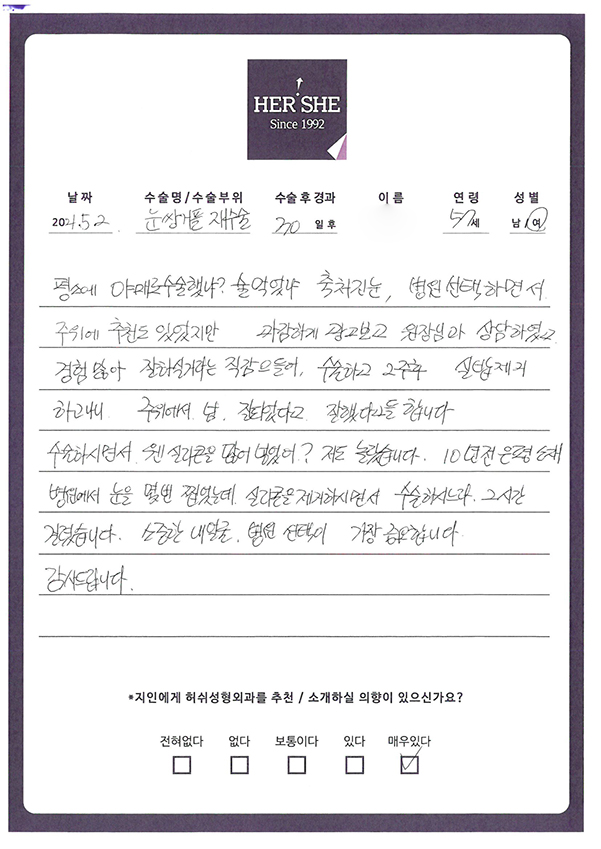 HER SHE
Since 1992
날 짜 수술명/수술부위 수술후경과 이 름 연 령 성 별
2021.5.2 눈쌍거풀 재수술 일 후 57세 남 여
평소에 야매로수술했냐? 술먹었냐 축처진눈, 병원선택하면서
주위에 추천도 있었지만 과감하게 광고보고 원장님과 상담하였고
경험많아 잘하실거라는 직감으들어, 수술하고 2주후 실밥제거
하고나니 주위에서 잘됬다고 잘했다고들 합니다
수술하시면서 웬 실리콘을 많이 넣었어? 저도 놀랐습니다. 10년전 은평 소재
병원에서 눈을 몇번 찝었는데 실리콘을제거하시면서 수술하시느라 2시간
걸렸습니다. 소중한 내얼굴, 병원 선택이 가장 중요합니다
감사드립니다.
*지인에게 허쉬성형외과를 추천 / 소개하실 의향이 있으신가요?
전혀없다 없다 보통이다 있다 매우있다